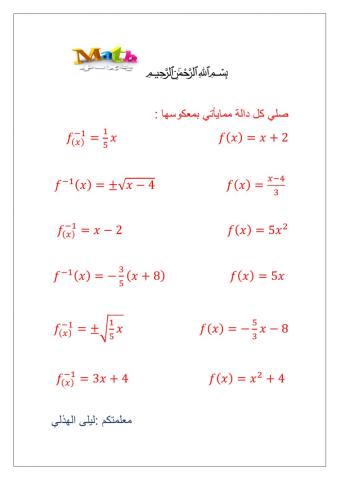 Math
بِسْمِ اللهِ الرَّحْمَنِ الرَّحِيمِ
صلي كل دالة ممايأتي بمعكوسها :
f(x) = x + 2    f⁻¹(x) = 1/5 x
f(x) = (x−4)/3    f⁻¹(x) = ±√(x − 4)
f(x) = 5x²    f⁻¹(x) = x − 2
f(x) = 5x    f⁻¹(x) = −3/5 (x + 8)
f(x) = −5/3 x − 8    f⁻¹(x) = ±√(1/5 x)
f(x) = x² + 4    f⁻¹(x) = 3x + 4
معلمتكم :ليلى الهذلي